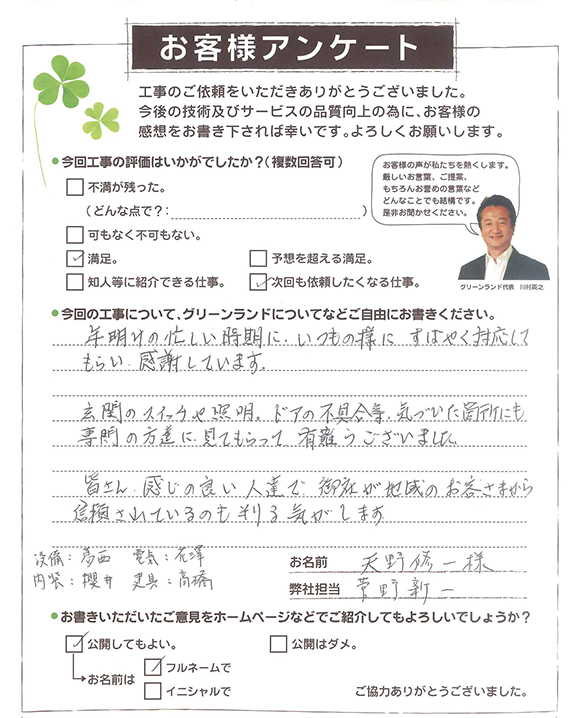 お客様アンケート
工事のご依頼をいただきありがとうございました。
今後の技術及びサービスの品質向上の為に、お客様の
感想をお書き下されば幸いです。よろしくお願いします。
●今回工事の評価はいかがでしたか？（複数回答可）
不満が残った。
（どんな点で？：　）
可もなく不可もない。
満足。
予想を超える満足。
知人等に紹介できる仕事。
次回も依頼したくなる仕事。
お客様の声が私たちを熱くします。
厳しいお言葉、ご提案、
もちろんお誉めの言葉など
どんなことでも結構です。
是非お聞かせください。
グリーンランド代表　川村英之
●今回の工事について、グリーンランドについてなどご自由にお書きください。
年明けの忙しい時期に、いつもの様に すばやく対応して
もらい、感謝しています。
玄関のスイッチや照明。ドアの不具合等、気づいた箇所にも
専門の方達に見てもらって 有難うございました。
皆さん、感じの良い人達で 御社が地域のお客さまから
信頼されているのも判る気がします
設備：葛西　電気：花澤
内装：櫻井　建具：高橋
お名前　天野修一様
弊社担当　菅野新一
●お書きいただいたご意見をホームページなどでご紹介してもよろしいでしょうか？
公開してもよい。
公開はダメ。
お名前は
フルネームで
イニシャルで
ご協力ありがとうございました。